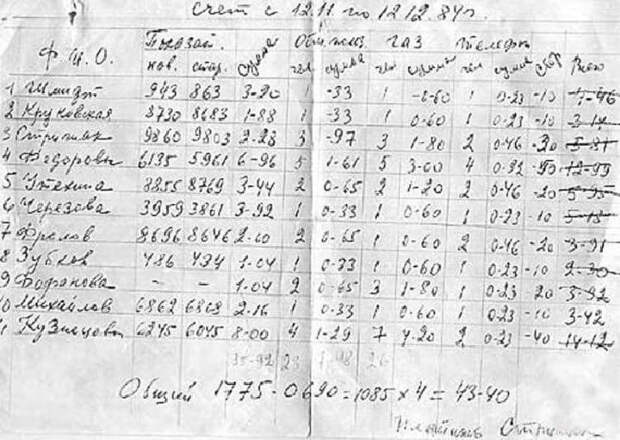 Счет с 12.11 по 12.12.84г.
Показан. Общ. польз. газ телефон
Ф.И.О. нов. стар. сумма чел сумма чел сумма чел сумма Всего
1 Шмидт 943 863 3-20 1 -33 1 -0-60 1 0-23 -10
2 Круковская 8730 8683 1-88 1 -33 1 0-60 1 0-23 -10 3-14
3 9860 9803 2-28 3 -97 3 1-80 2 0-46 -20
4 Федоровы 6135 5961 6-96 5 1-61 5 3-00 4 0-92
5 Утехина 8855 8769 3-44 2 0-65 2 1-20 2 0-46 -20 5-95
6 Черезова 3959 3861 3-92 1 0-33 1 0-60 1 0-23 -10
7 Фролов 8696 8646 2 0-65 1 0-60 2 0-46 -20 3-91
8 Зубков 486 1-04 1 1 0-60 1 0-23 -10 2-30
9 - - 1-04 2 0-65 3 1-80 1 0-23 20
10 Михайлов 6862 2-16 1 0-33 1 0-60 1 0-23 -10 3-42
11 Кузнецовы 6245 6045 8-00 4 1-29 7 4-20 2 0-23 -40 14-12
35-92 23 26
Общий 1775-0690=1085×4=43-40